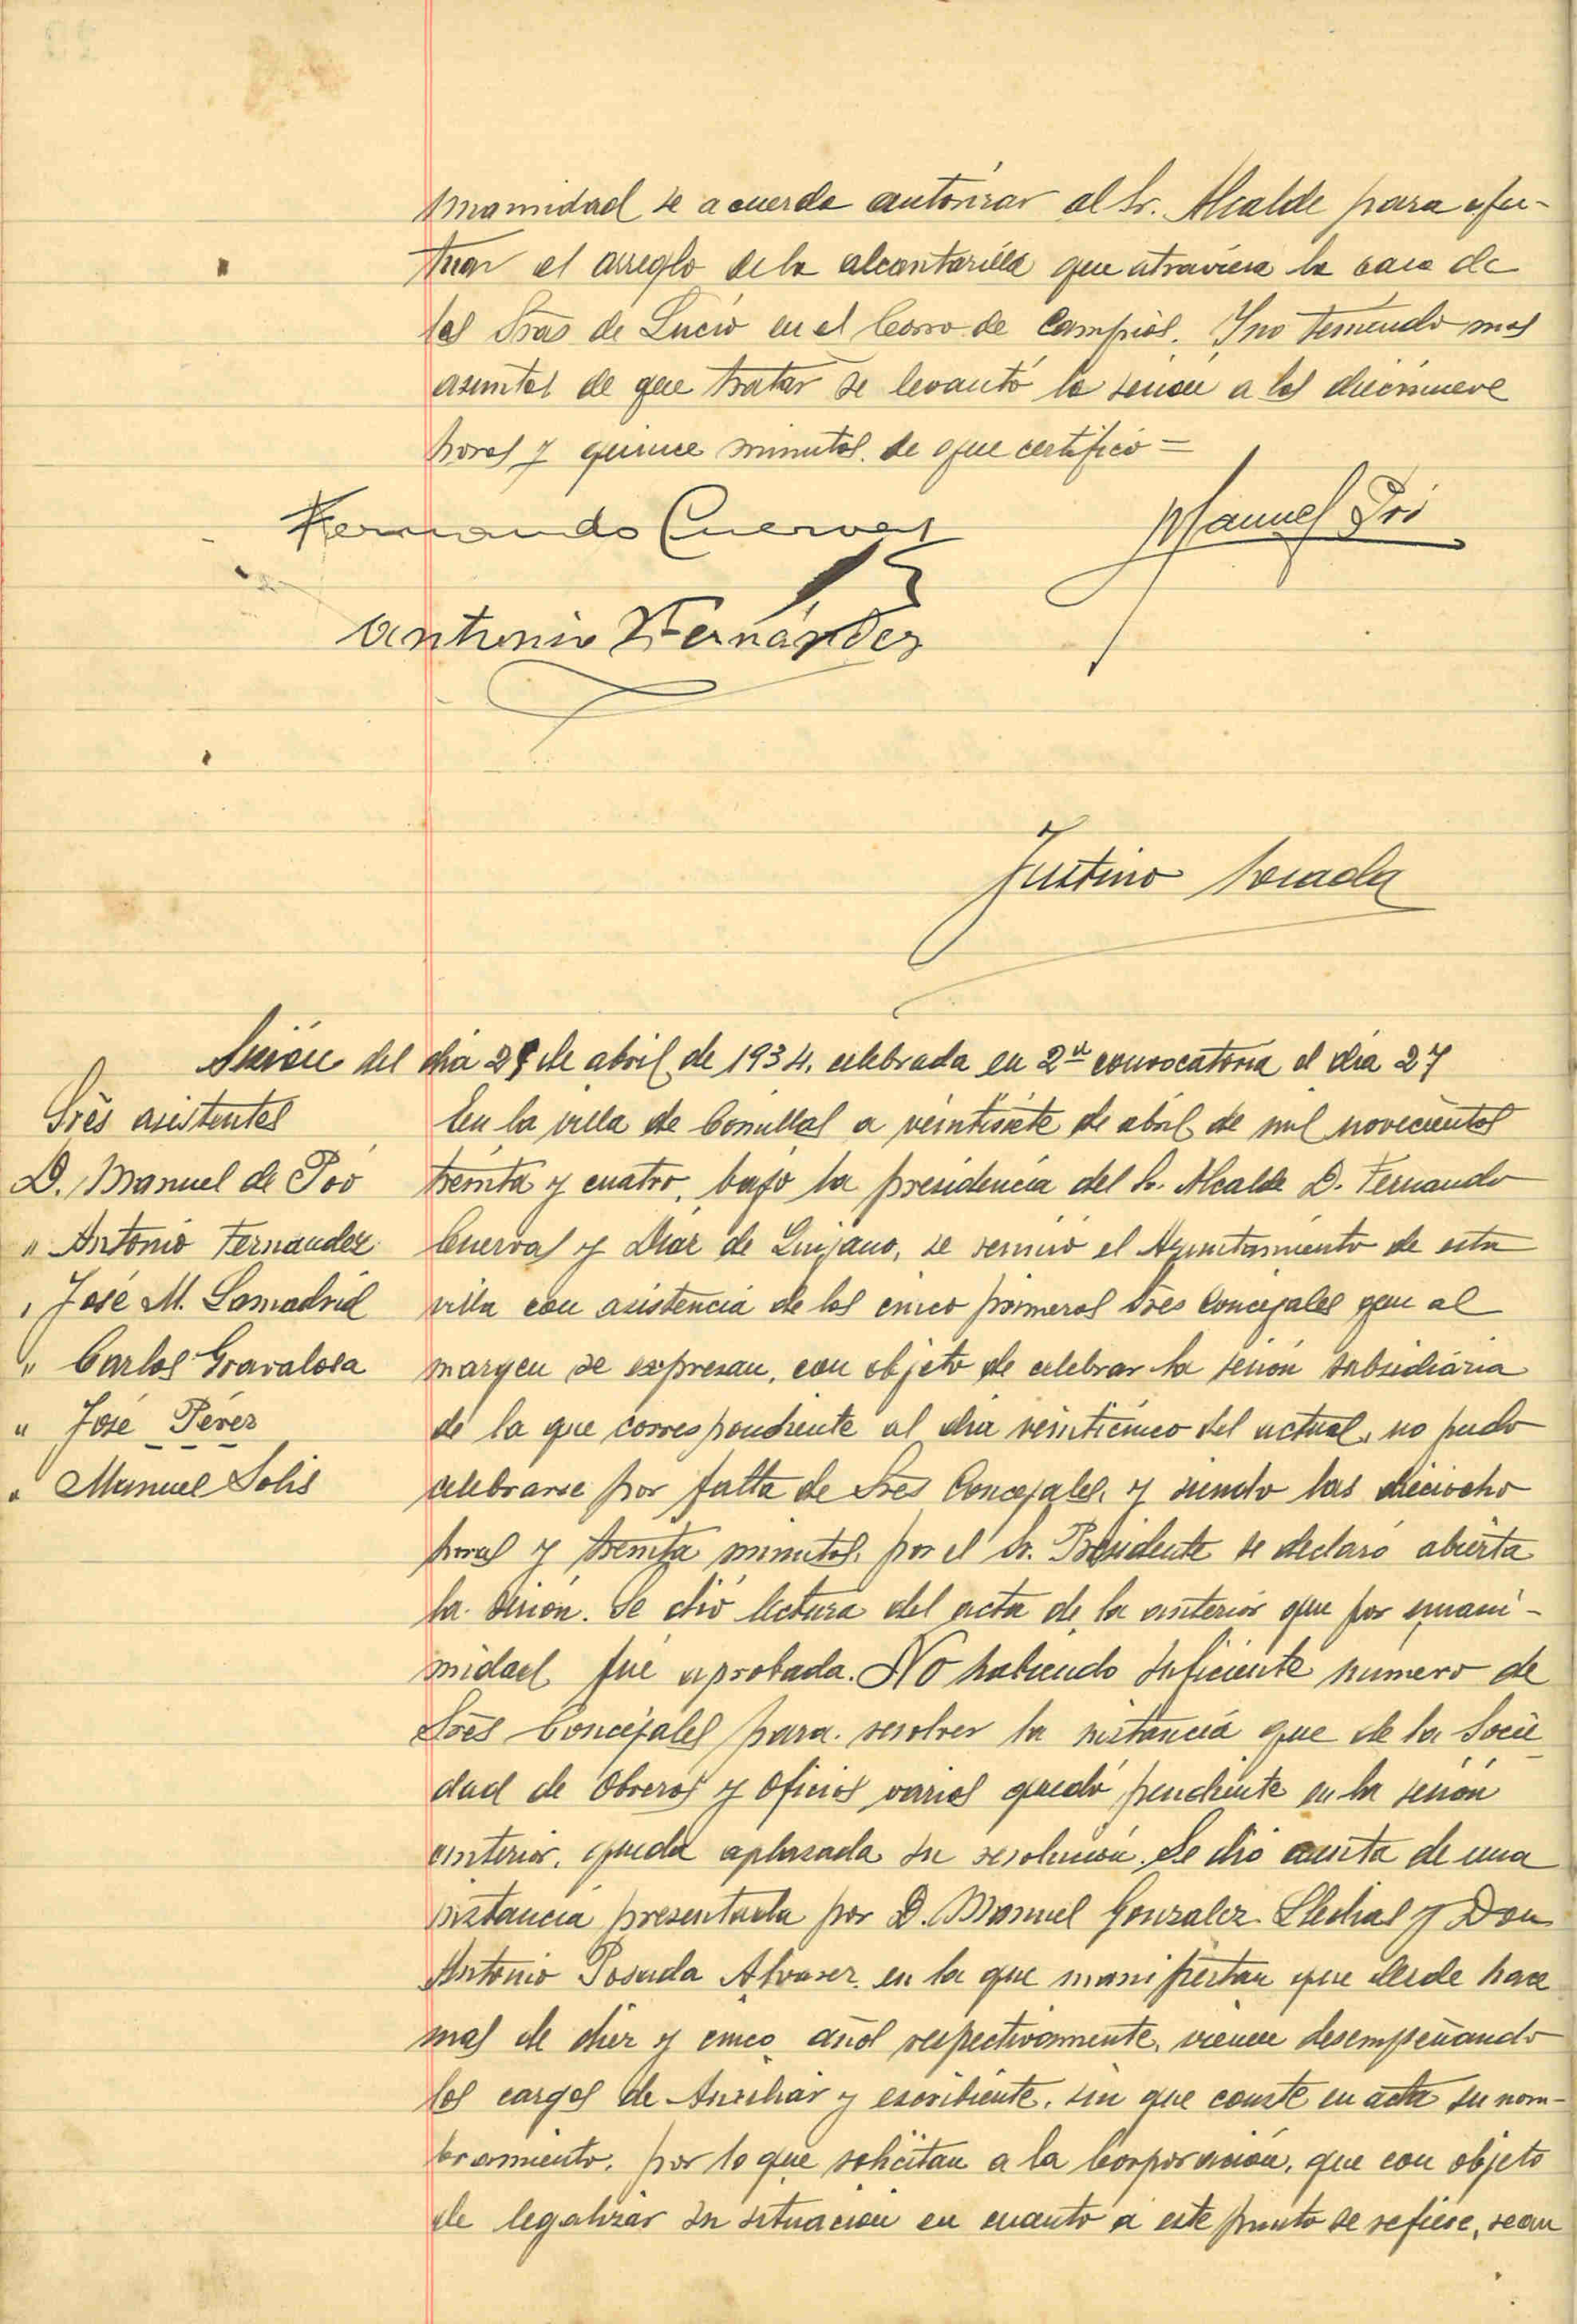 unanimidad se acuerda autorizar al Sr. Alcalde para efec-
tuar el arreglo de la alcantarilla que atraviesa la casa de
las Sras de Lucio en el Corro de Campios. Y no teniendo mas
asuntos de que tratar se levantó la sesión a las diecinueve
horas y quince minutos. de que certifico =
Fernando Cuervas
Manuel Poó
Antonio Fernández
Justino
Sesión del día 25 de abril de 1934, celebrada en 2ª convocatoria el día 27
Sres asistentes
D. Manuel de Poó
" Antonio Fernandez
" José M. Lamadrid
" Carlos Gravalosa
" José Pérez
" Manuel Solis
En la villa de Comillas a veintisiete de abril de mil novecientos
treinta y cuatro, bajo la presidencia del Sr. Alcalde D. Fernando
Cuervas y Díaz de Quijano, se reunió el Ayuntamiento de esta
villa con asistencia de los cinco primeros Sres Concejales que al
margen se expresan, con objeto de celebrar la sesión subsidiaria
de la que correspondiente al día veinticinco del actual, no pudo
celebrarse por falta de Sres Concejales, y siendo las dieciocho
horas y treinta minutos, por el Sr. Presidente se declaró abierta
la sesión. Se dió lectura del acta de la anterior que por unani-
midad fué aprobada. No habiendo suficiente número de
Sres Concejales para resolver la instancia que de la Socie
dad de Obreros y Oficios varios quedó pendiente en la sesión
anterior, queda aplazada su resolución. Se dio cuenta de una
instancia presentada por D. Manuel Gonzalez Llechas y Don
Antonio Posada Alvarez en la que manifiestan que desde hace
mas de diez y cinco años respectivamente, vienen desempeñando
los cargos de Auxiliar y escribiente, sin que conste en acta su nom-
bramiento, por lo que solicitan a la Corporación, que con objeto
de legalizar su situación en cuanto a este punto se refiere, sean